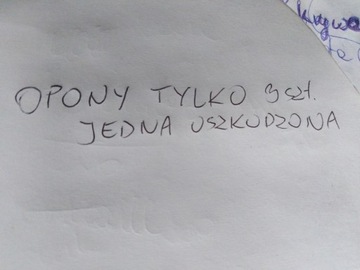 OPONY TYLKO 3 szt.
JEDNA USZKODZONA